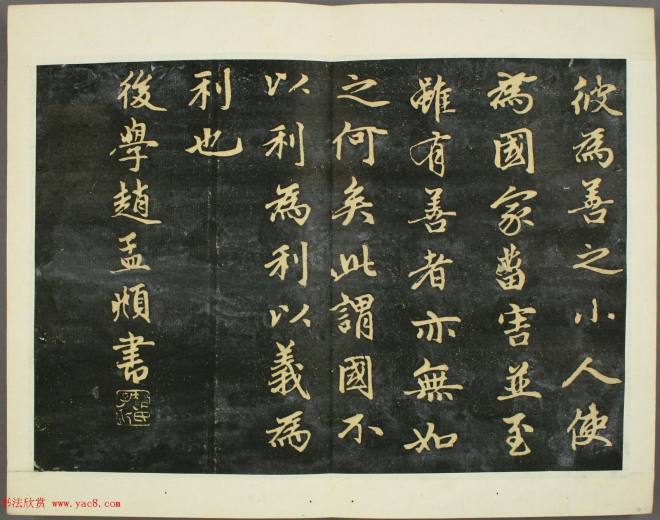 彼為善之小人使
為國家菑害並至
雖有善者亦無如
之何矣此謂國不
以利為利以義為
利也
後學趙孟頫書
趙氏子昂
书法欣赏 www.yac8.com